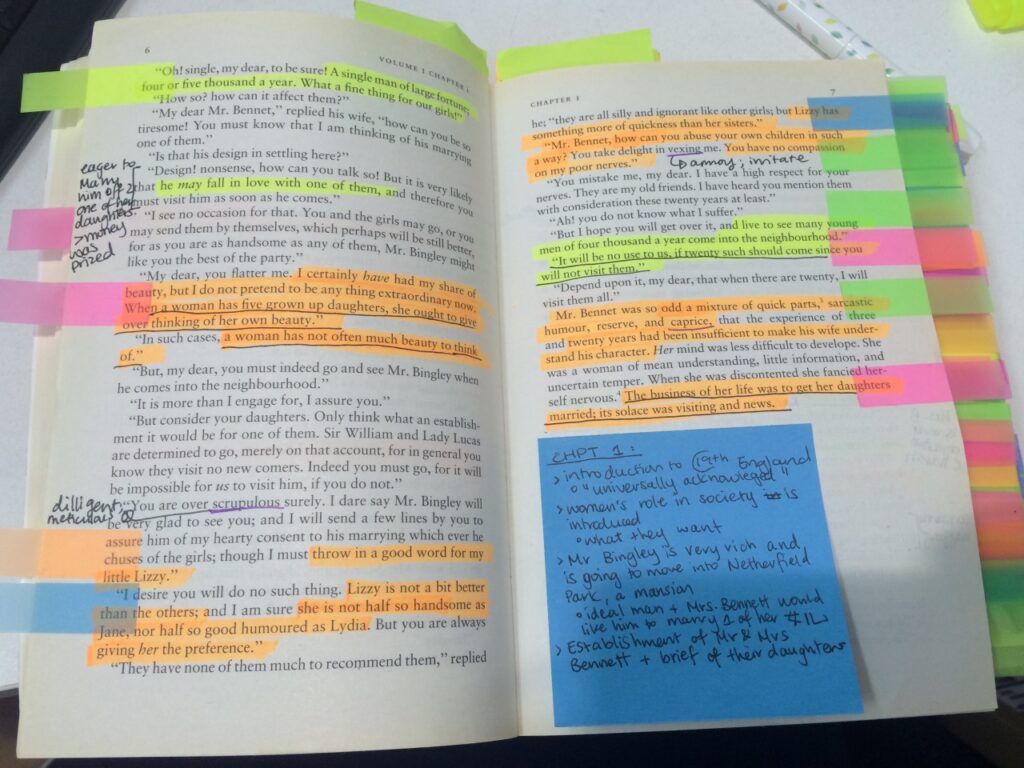 6
VOLUME I CHAPTER 1
“Oh! single, my dear, to be sure! A single man of large fortune;
four or five thousand a year. What a fine thing for our girls!”
“How so? how can it affect them?”
“My dear Mr. Bennet,” replied his wife, “how can you be so
tiresome! You must know that I am thinking of his marrying
one of them.”
“Is that his design in settling here?”
“Design! nonsense, how can you talk so! But it is very likely
that he may fall in love with one of them, and therefore you
must visit him as soon as he comes.”
“I see no occasion for that. You and the girls may go, or you
may send them by themselves, which perhaps will be still better,
for as you are as handsome as any of them, Mr. Bingley might
like you the best of the party.”
“My dear, you flatter me. I certainly have had my share of
beauty, but I do not pretend to be any thing extraordinary now.
When a woman has five grown up daughters, she ought to give
over thinking of her own beauty.”
“In such cases, a woman has not often much beauty to think
of.”
“But, my dear, you must indeed go and see Mr. Bingley when
he comes into the neighbourhood.”
“It is more than I engage for, I assure you.”
“But consider your daughters. Only think what an establish-
ment it would be for one of them. Sir William and Lady Lucas
are determined to go, merely on that account, for in general you
know they visit no new comers. Indeed you must go, for it will
be impossible for us to visit him, if you do not.”
“You are over scrupulous surely. I dare say Mr. Bingley will
be very glad to see you; and I will send a few lines by you to
assure him of my hearty consent to his marrying which ever he
chuses of the girls; though I must throw in a good word for my
little Lizzy.”
“I desire you will do no such thing. Lizzy is not a bit better
than the others; and I am sure she is not half so handsome as
Jane, nor half so good humoured as Lydia. But you are always
giving her the preference.”
“They have none of them much to recommend them,” replied
eager to
marry
him off 2
one of her
daughters.
> money
was
prized
dilligent,
meticulous
CHAPTER 1
7
he; “they are all silly and ignorant like other girls; but Lizzy has
something more of quickness than her sisters.”
“Mr. Bennet, how can you abuse your own children in such
a way? You take delight in vexing me. You have no compassion
on my poor nerves.”
annoy; irritate
“You mistake me, my dear. I have a high respect for your
nerves. They are my old friends. I have heard you mention them
with consideration these twenty years at least.”
“Ah! you do not know what I suffer.”
“But I hope you will get over it, and live to see many young
men of four thousand a year come into the neighbourhood.”
“It will be no use to us, if twenty such should come since you
will not visit them.”
“Depend upon it, my dear, that when there are twenty, I will
visit them all.”
Mr. Bennet was so odd a mixture of quick parts,³ sarcastic
humour, reserve, and caprice, that the experience of three
and twenty years had been insufficient to make his wife under-
stand his character. Her mind was less difficult to develope. She
was a woman of mean understanding, little information, and
uncertain temper. When she was discontented she fancied her-
self nervous.⁴ The business of her life was to get her daughters
married; its solace was visiting and news.
CHPT 1:
> introduction to 19th England
o "universally acknowleged"
> women's role in society is
introduced
o what they want
> Mr Bingley is very rich and
is going to move into Netherfield
Park, a mansion
o ideal man + Mrs. Bennett would
like him to marry 1 of her
> Establishment of Mr & Mrs
Bennett + brief of their daughters